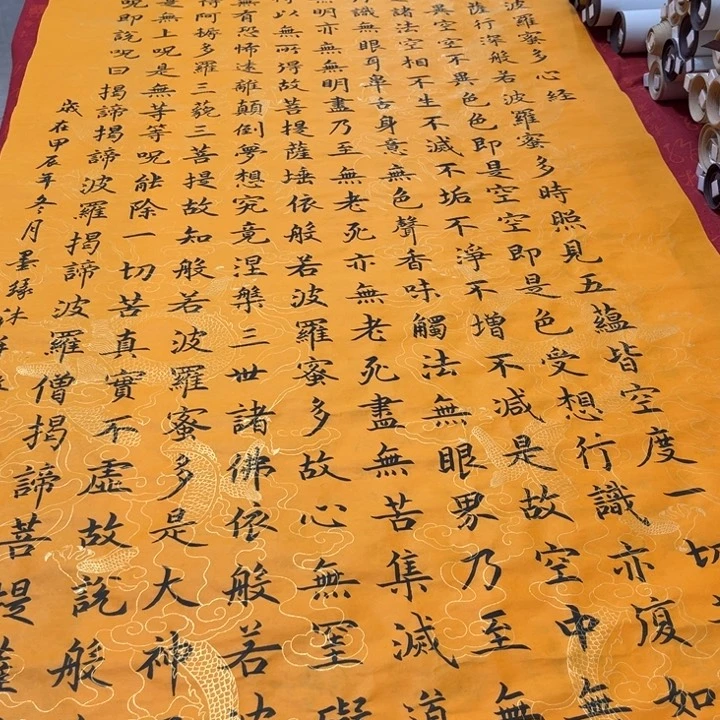 波羅蜜多心經
薩行深般若波羅蜜多時照見五蘊皆空度一切
異空空不異色色即是空空即是色受想行識亦復如
諸法空相不生不滅不垢不淨不增不減是故空中無
識無眼耳鼻舌身意無色聲香味觸法無眼界乃至無
無明亦無無明盡乃至無老死亦無老死盡無苦集滅道
得以無所得故菩提薩埵依般若波羅蜜多故心無罣礙
無有恐怖遠離顛倒夢想究竟涅槃三世諸佛依般若波
得阿耨多羅三藐三菩提故知般若波羅蜜多是大神
是無上呪是無等等呪能除一切苦真實不虛故說般
呪即說呪曰揭諦揭諦波羅揭諦波羅僧揭諦菩提薩
歲在甲辰年冬月墨緣沐